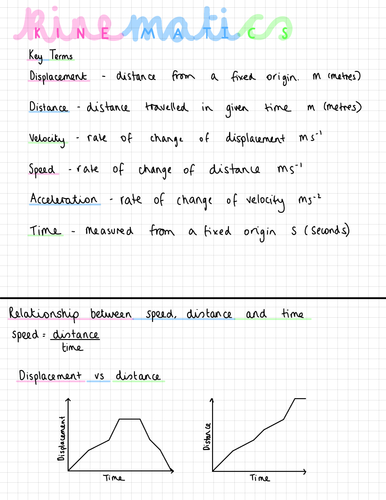 kinematics
KINEMATICS
Key Terms
Displacement - distance from a fixed origin. m (metres)
Distance - distance travelled in given time m (metres)
Velocity - rate of change of displacement ms⁻¹
Speed - rate of change of distance ms⁻¹
Acceleration - rate of change of velocity ms⁻²
Time - measured from a fixed origin s (seconds)
Relationship between speed, distance and time
speed = distance
time
Displacement vs distance
Displacement
Time
Distance
Time